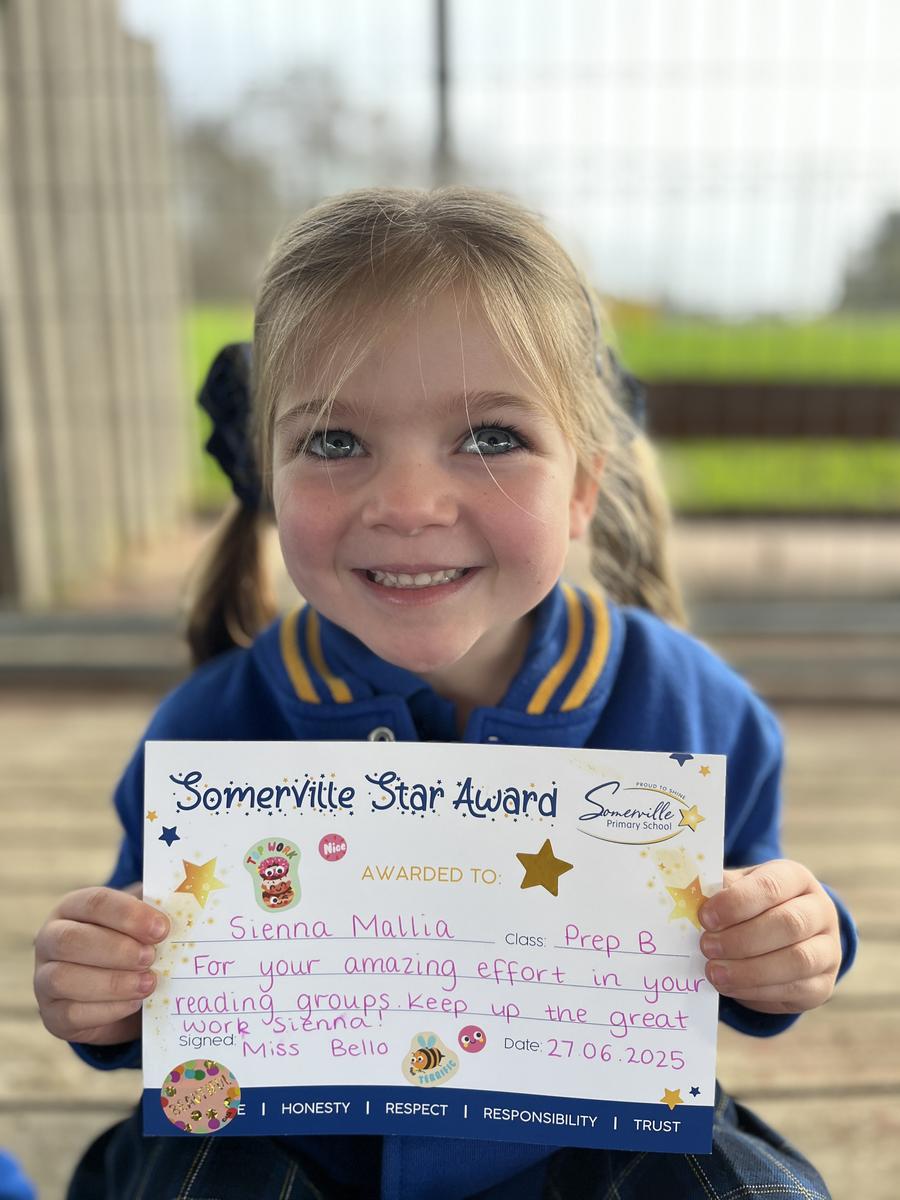 Somerville Star Award
PROUD TO SHINE
Somerville
Primary School
TOP WORK
Nice
AWARDED TO:
Sienna Mallia Class: Prep B
For your amazing effort in your
reading groups. Keep up the great
work Sienna!
Signed: Miss Bello Date: 27.06.2025
TERRIFIC
HONESTY | RESPECT | RESPONSIBILITY | TRUST